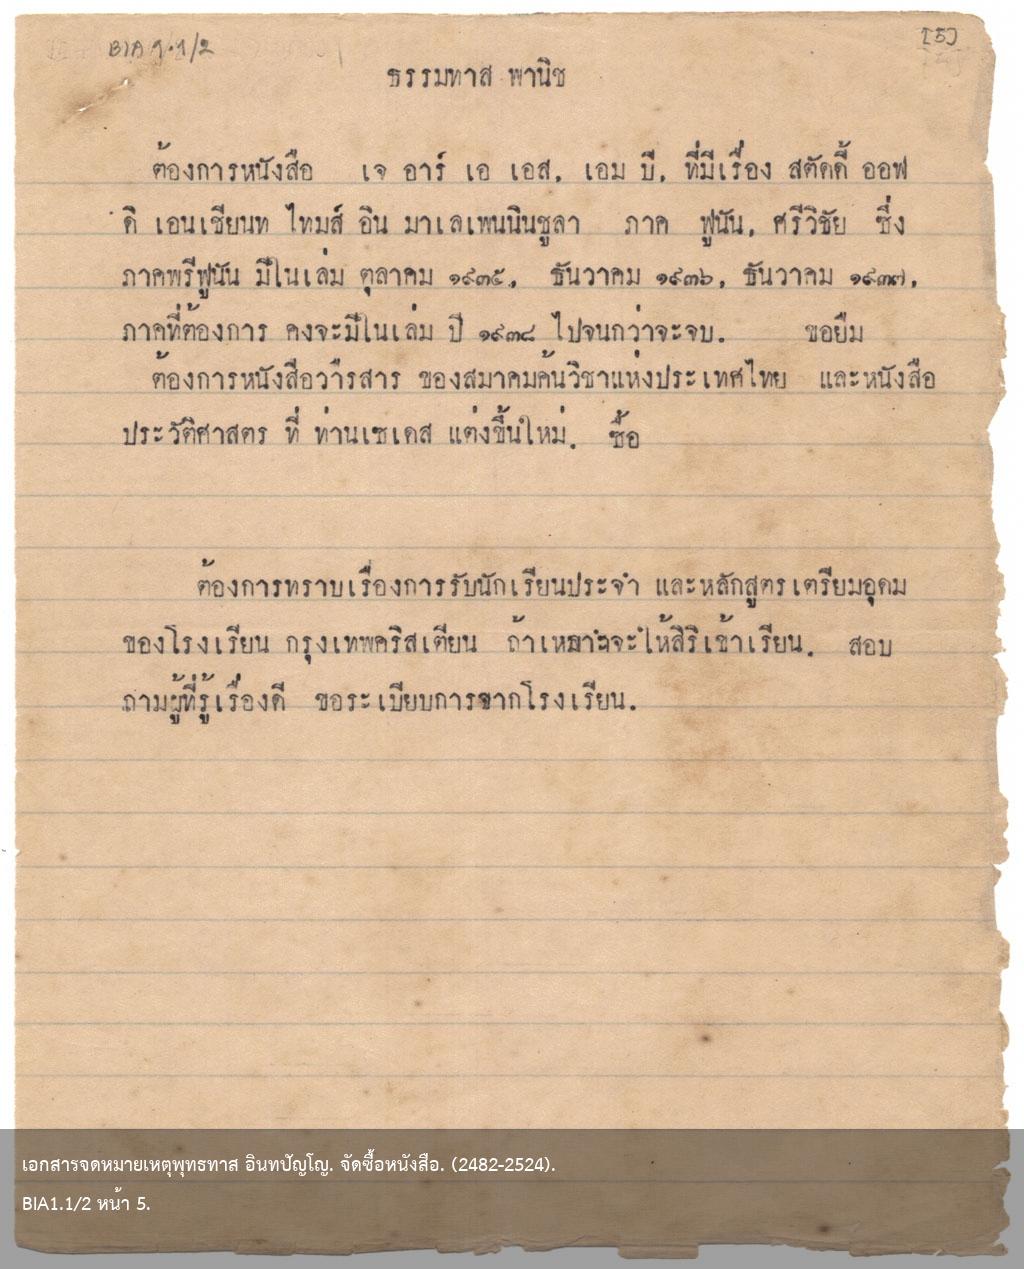 BIA ๑.๑/2
[5]
ธรรมทาส พานิช
ต้องการหนังสือ เจ อาร์ เอ เอส, เอม บี, ที่มีเรื่อง สตัดดี้ ออฟ
ดิ เอนเชียนท ไทมส์ อิน มาเลเพนนินซูลา ภาค ฟูนัน, ศรีวิชัย ซึ่ง
ภาคพรีฟูนัน มีในเล่ม ตุลาคม ๑๙๓๕, ธันวาคม ๑๙๓๖, ธันวาคม ๑๙๓๗,
ภาคที่ต้องการ คงจะมีในเล่ม ปี ๑๙๓๘ ไปจนกว่าจะจบ. ขอยืม
ต้องการหนังสือวารสาร ของสมาคมค้นวิชาแห่งประเทศไทย และหนังสือ
ประวัติศาสตร ที่ ท่านเซเดส แต่งขึ้นใหม่. ซื้อ
ต้องการทราบเรื่องการรับนักเรียนประจำ และหลักสูตรเตรียมอุดม
ของโรงเรียน กรุงเทพคริสเตียน ถ้าเหมาะจะให้สิริเข้าเรียน. สอบ
ถามผู้ที่รู้เรื่องดี ขอระเบียบการจากโรงเรียน.
เอกสารจดหมายเหตุพุทธทาส อินทปัญโญ. จัดซื้อหนังสือ. (2482-2524).
BIA1.1/2 หน้า 5.